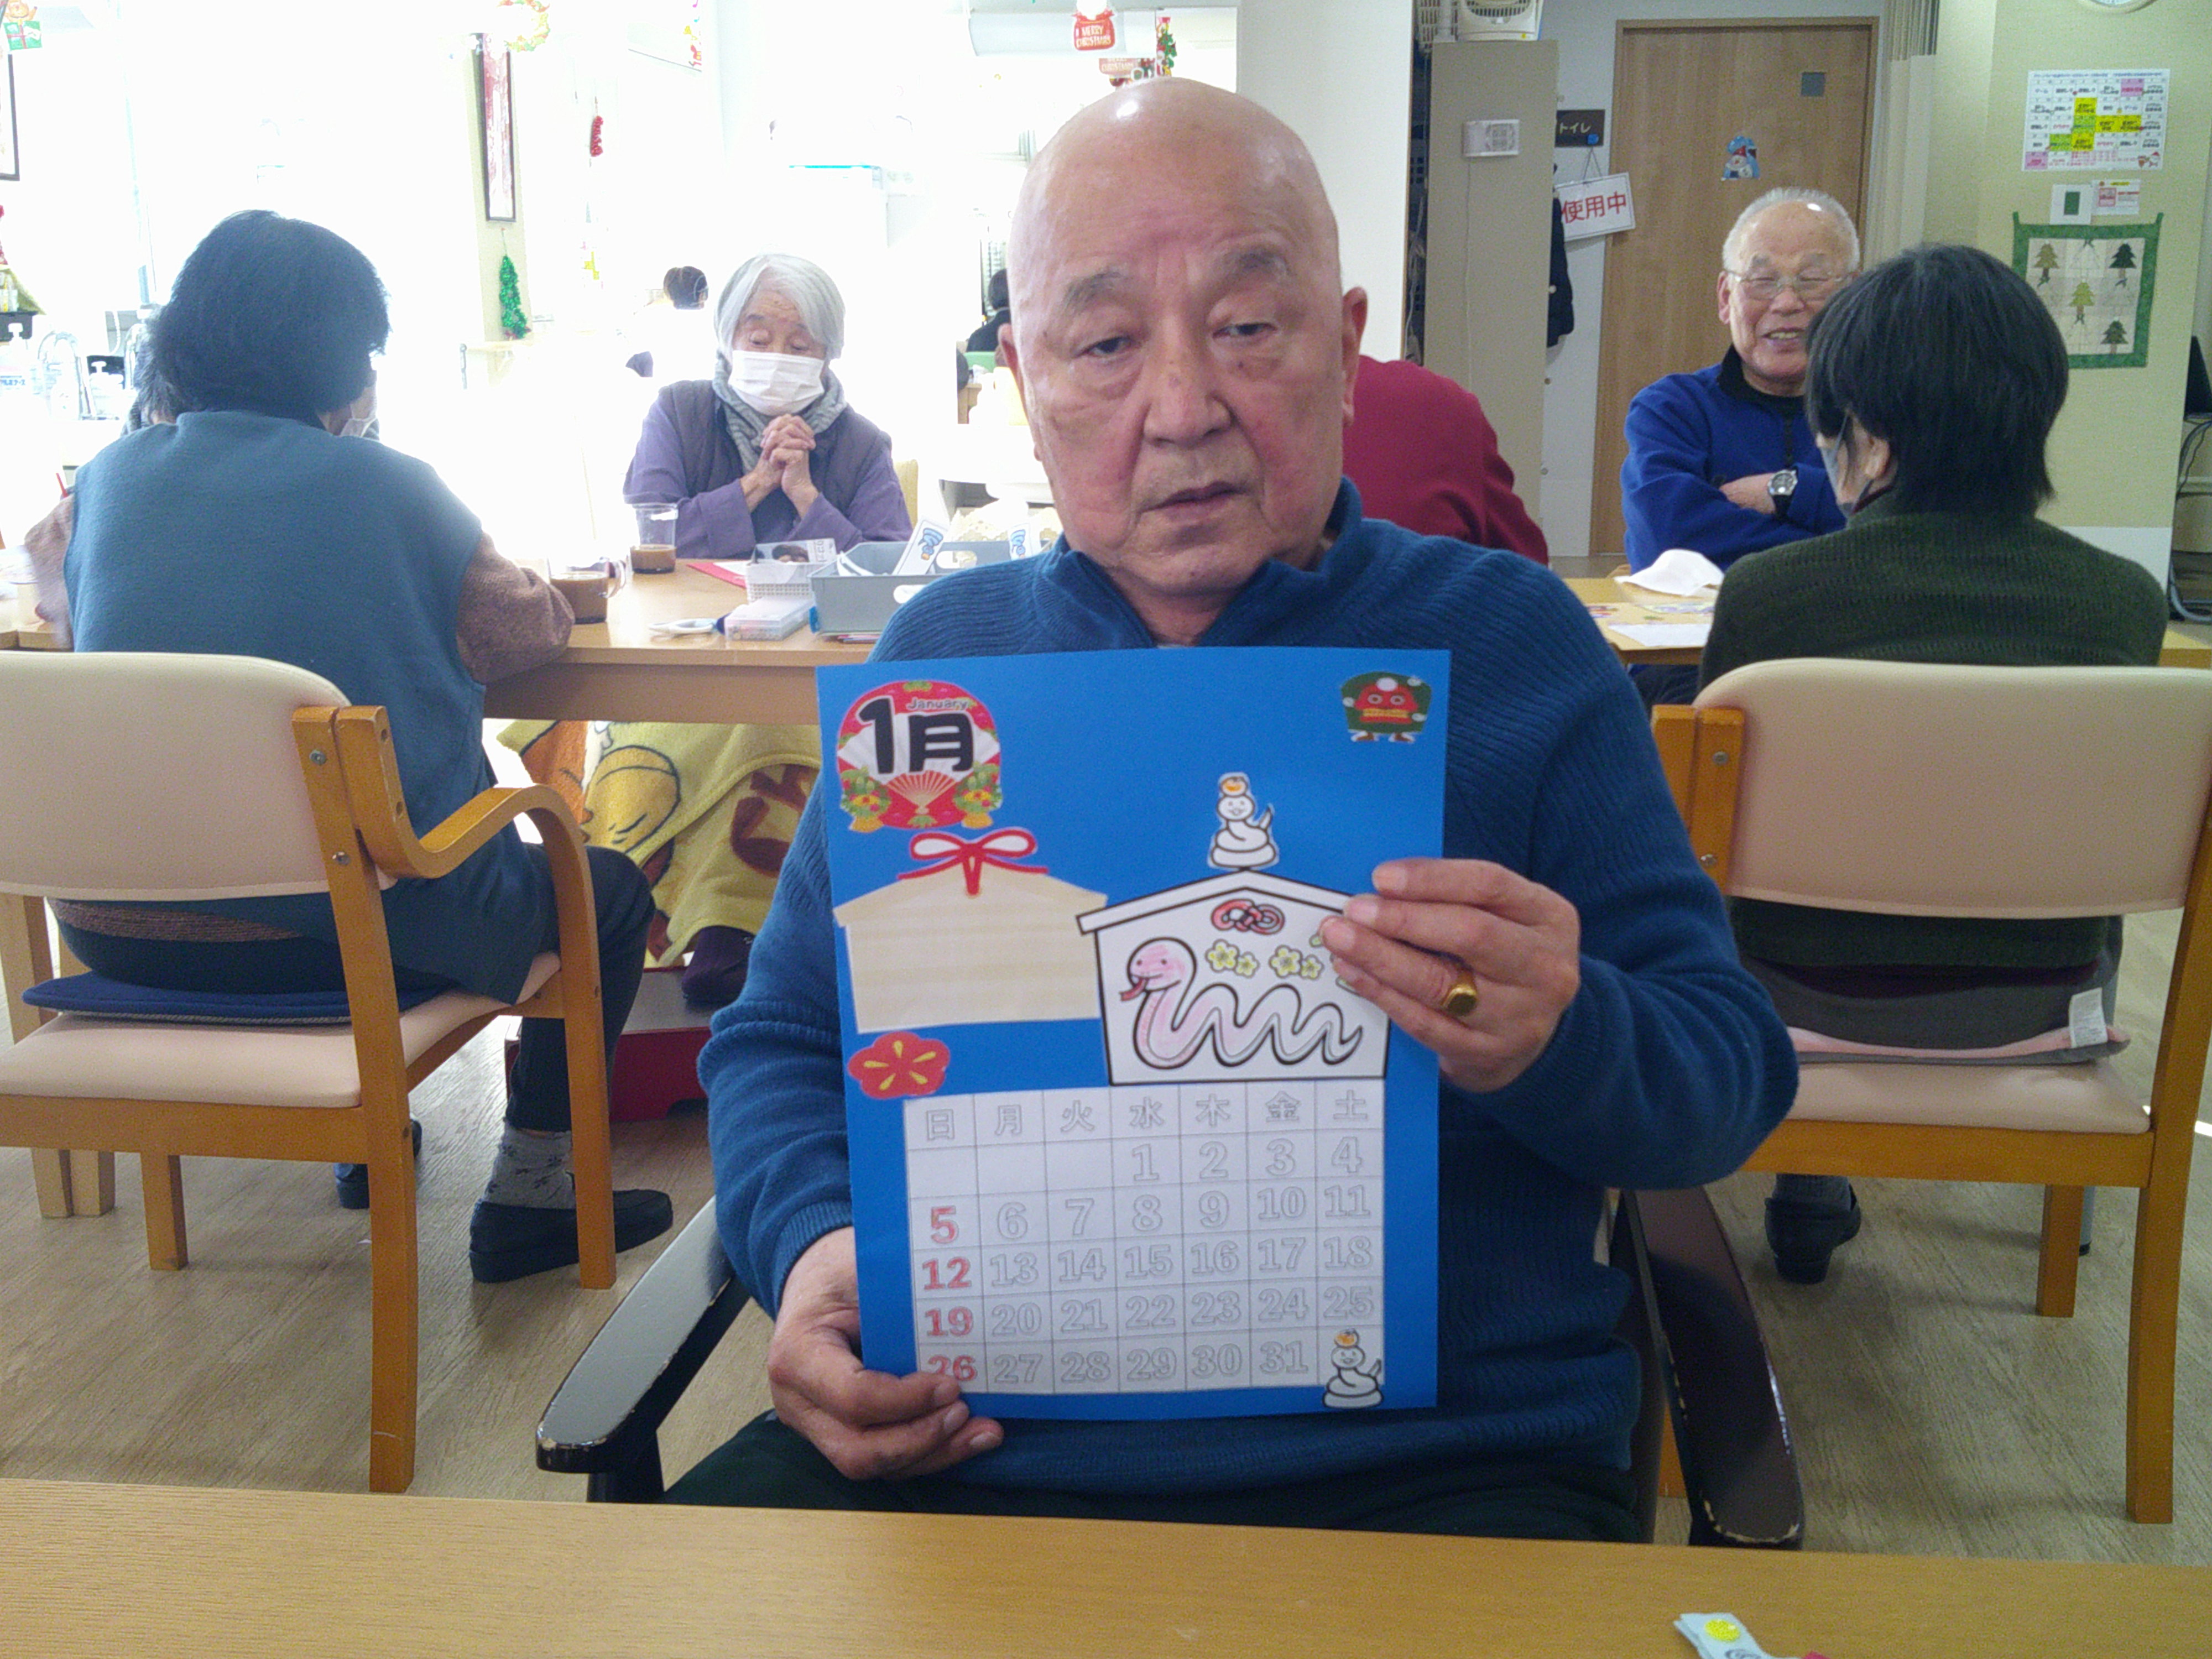 MERRY
CHRISTMAS
トイレ
使用中
January
1月
日 月 火 水 木 金 土
1 2 3 4
5 6 7 8 9 10 11
12 13 14 15 16 17 18
19 20 21 22 23 24 25
26 27 28 29 30 31